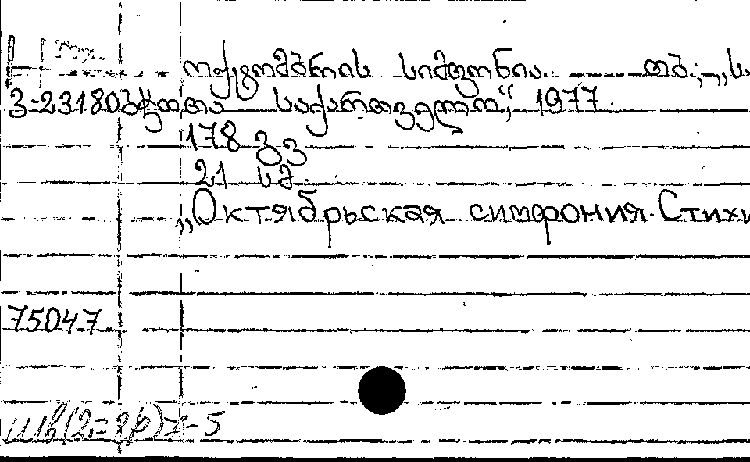 ოქტომბრის სიმფონია. თბ., „ს
3-23180 ბჭოთა საქართველო“, 1977
178 გვ
21 სმ.
„Октябрьская симфония. Стихи
75047